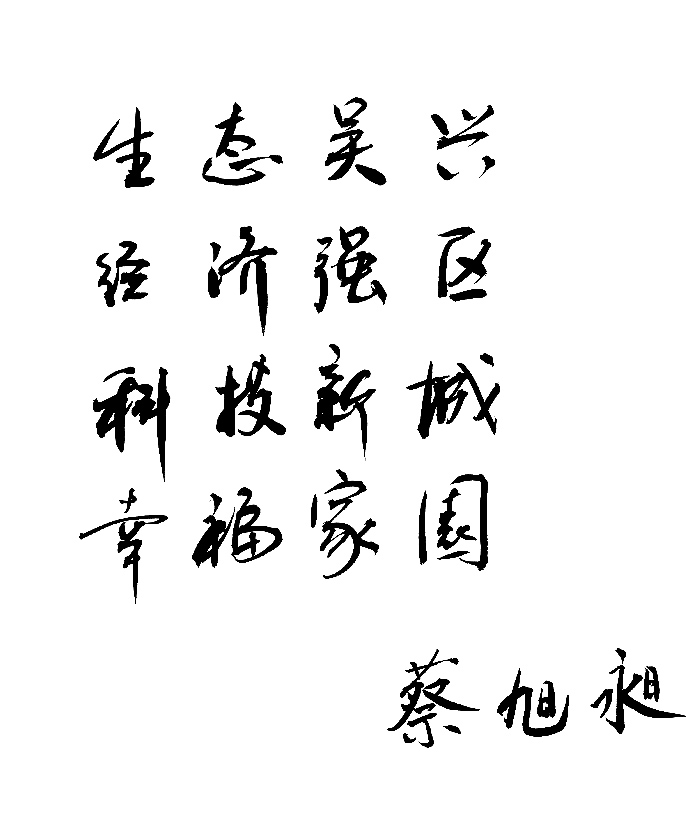 生态吴兴
经济强区
科技新城
幸福家园
蔡旭昶